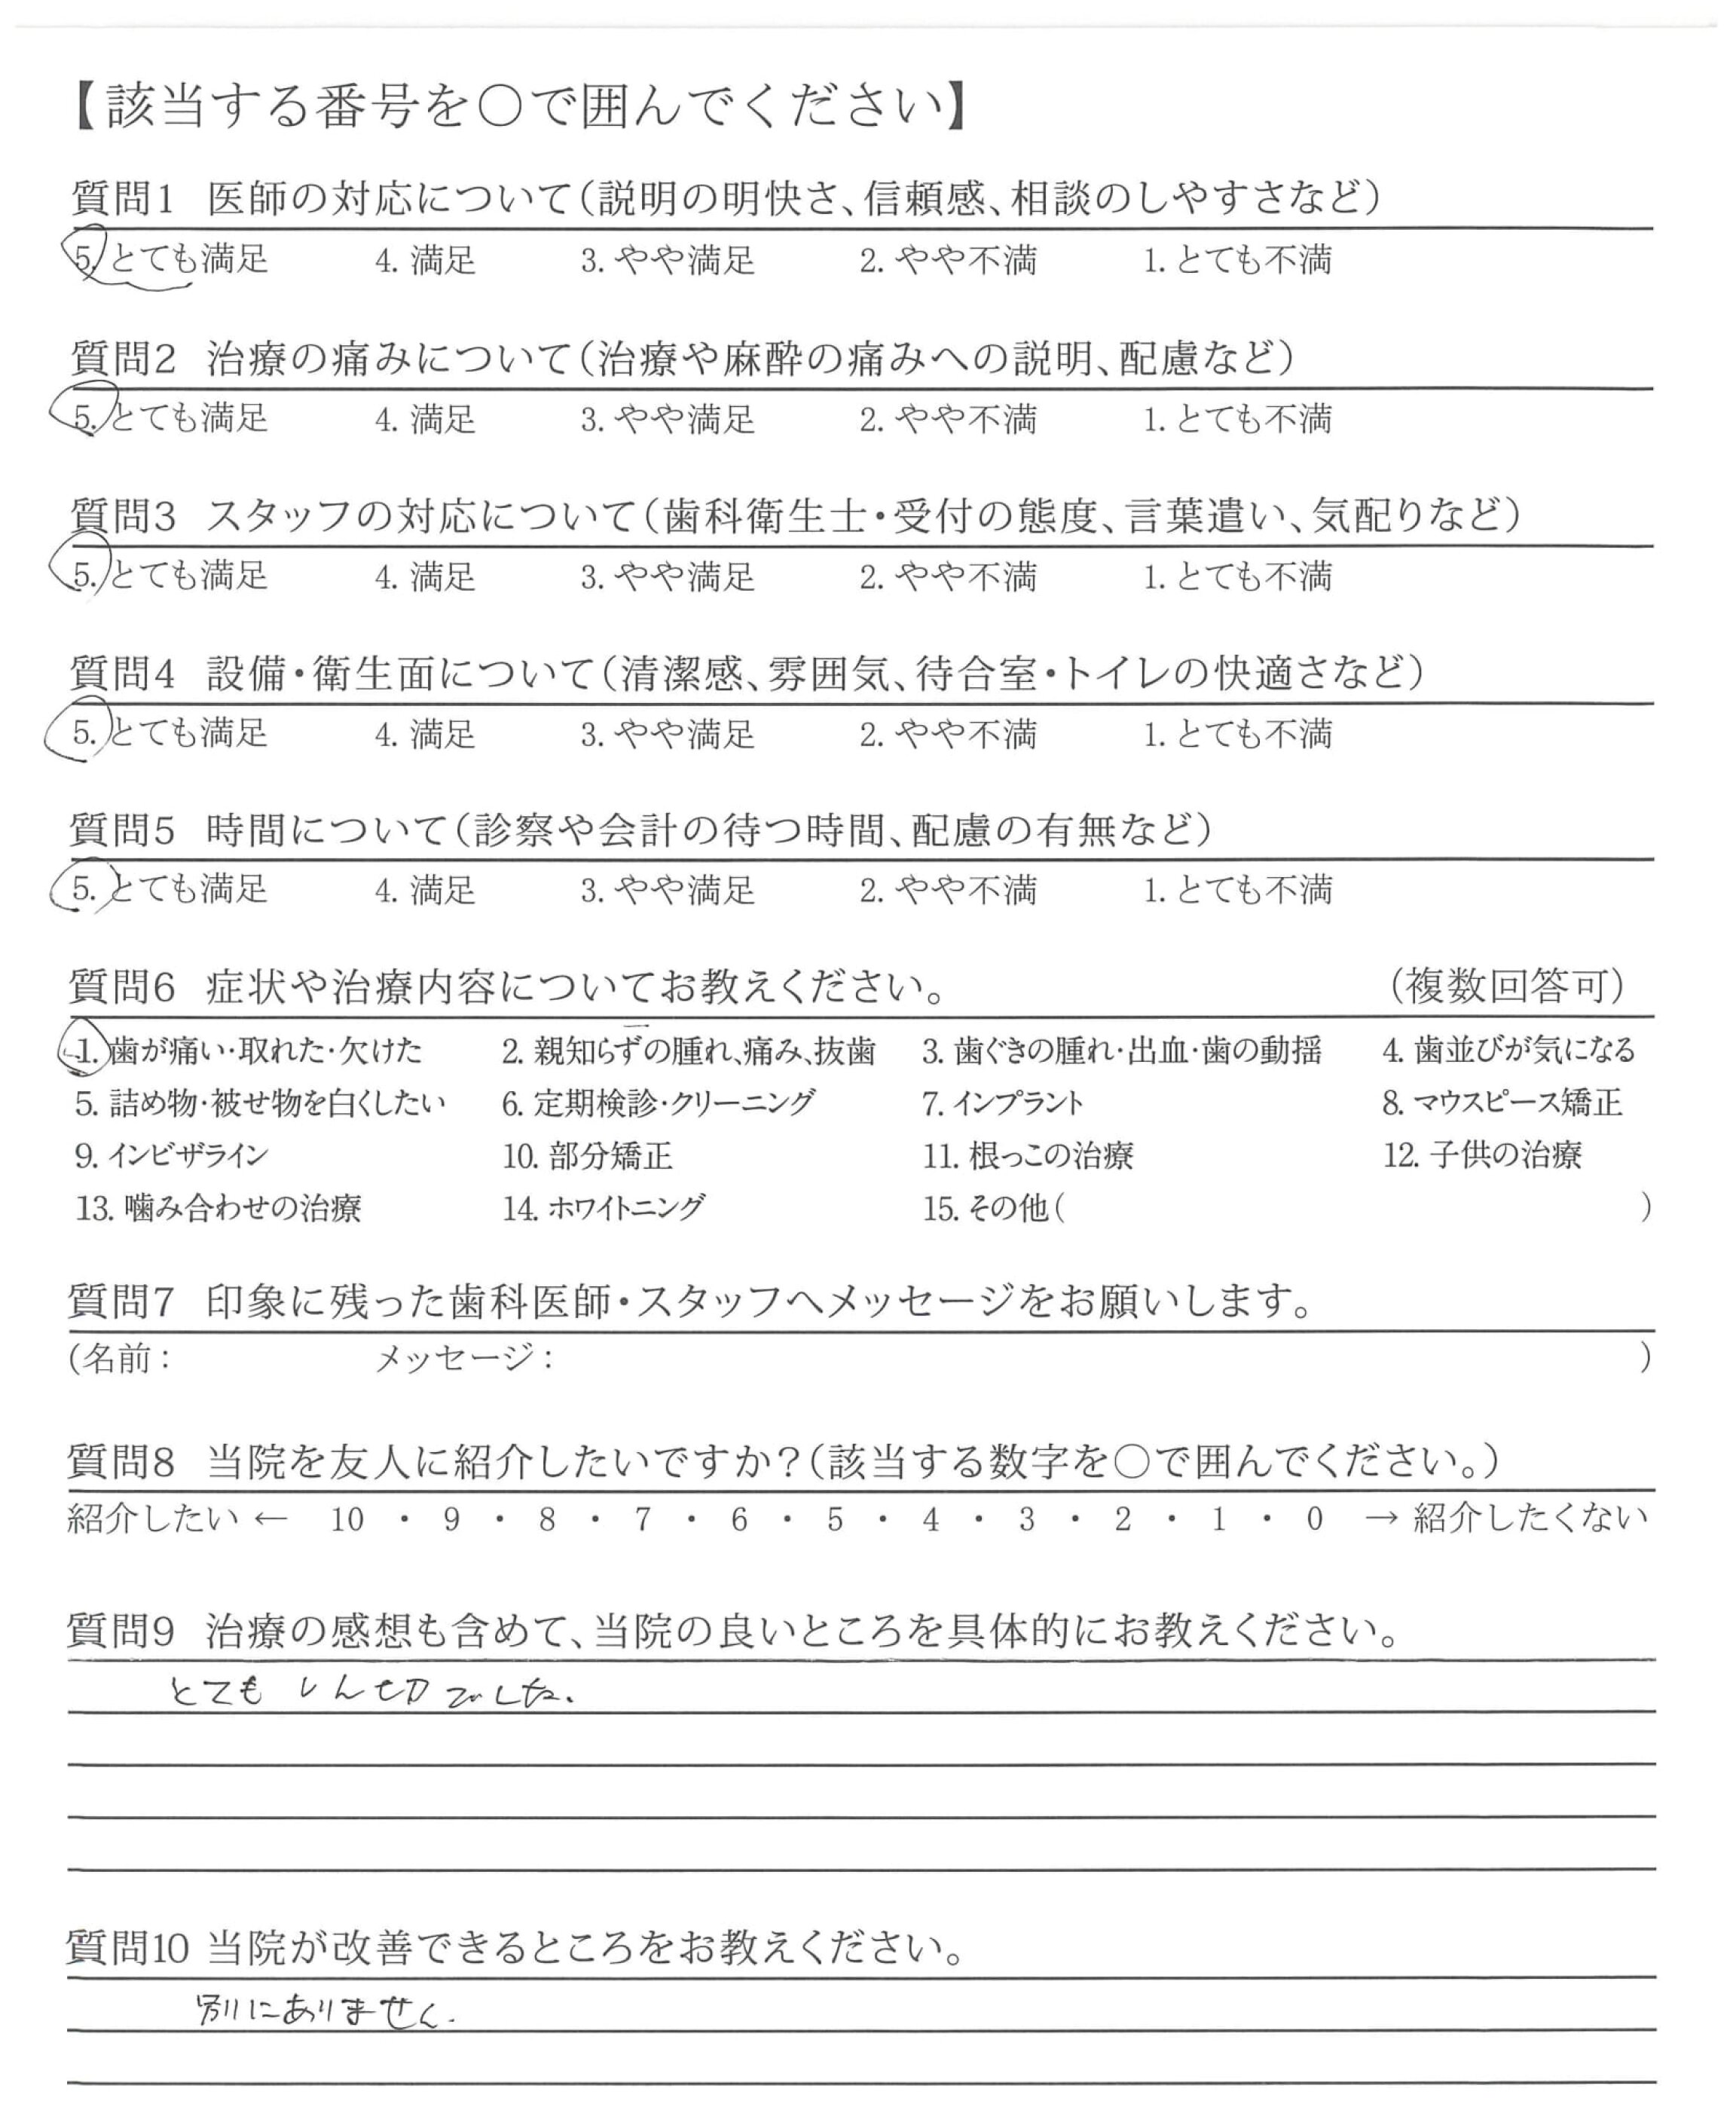 【該当する番号を○で囲んでください】
質問1 医師の対応について（説明の明快さ、信頼感、相談のしやすさなど）
5. とても満足 4. 満足 3. やや満足 2. やや不満 1. とても不満
質問2 治療の痛みについて（治療や麻酔の痛みへの説明、配慮など）
5. とても満足 4. 満足 3. やや満足 2. やや不満 1. とても不満
質問3 スタッフの対応について（歯科衛生士・受付の態度、言葉遣い、気配りなど）
5. とても満足 4. 満足 3. やや満足 2. やや不満 1. とても不満
質問4 設備・衛生面について（清潔感、雰囲気、待合室・トイレの快適さなど）
5. とても満足 4. 満足 3. やや満足 2. やや不満 1. とても不満
質問5 時間について（診察や会計の待つ時間、配慮の有無など）
5. とても満足 4. 満足 3. やや満足 2. やや不満 1. とても不満
質問6 症状や治療内容についてお教えください。 （複数回答可）
1. 歯が痛い・取れた・欠けた 2. 親知らずの腫れ、痛み、抜歯 3. 歯ぐきの腫れ・出血・歯の動揺 4. 歯並びが気になる
5. 詰め物・被せ物を白くしたい 6. 定期検診・クリーニング 7. インプラント 8. マウスピース矯正
9. インビザライン 10. 部分矯正 11. 根っこの治療 12. 子供の治療
13. 噛み合わせの治療 14. ホワイトニング 15. その他（ ）
質問7 印象に残った歯科医師・スタッフへメッセージをお願いします。
（名前： メッセージ： ）
質問8 当院を友人に紹介したいですか？（該当する数字を○で囲んでください。）
紹介したい ← 10 ・ 9 ・ 8 ・ 7 ・ 6 ・ 5 ・ 4 ・ 3 ・ 2 ・ 1 ・ 0 → 紹介したくない
質問9 治療の感想も含めて、当院の良いところを具体的にお教えください。
とても しん切でした.
質問10 当院が改善できるところをお教えください。
別にありません.